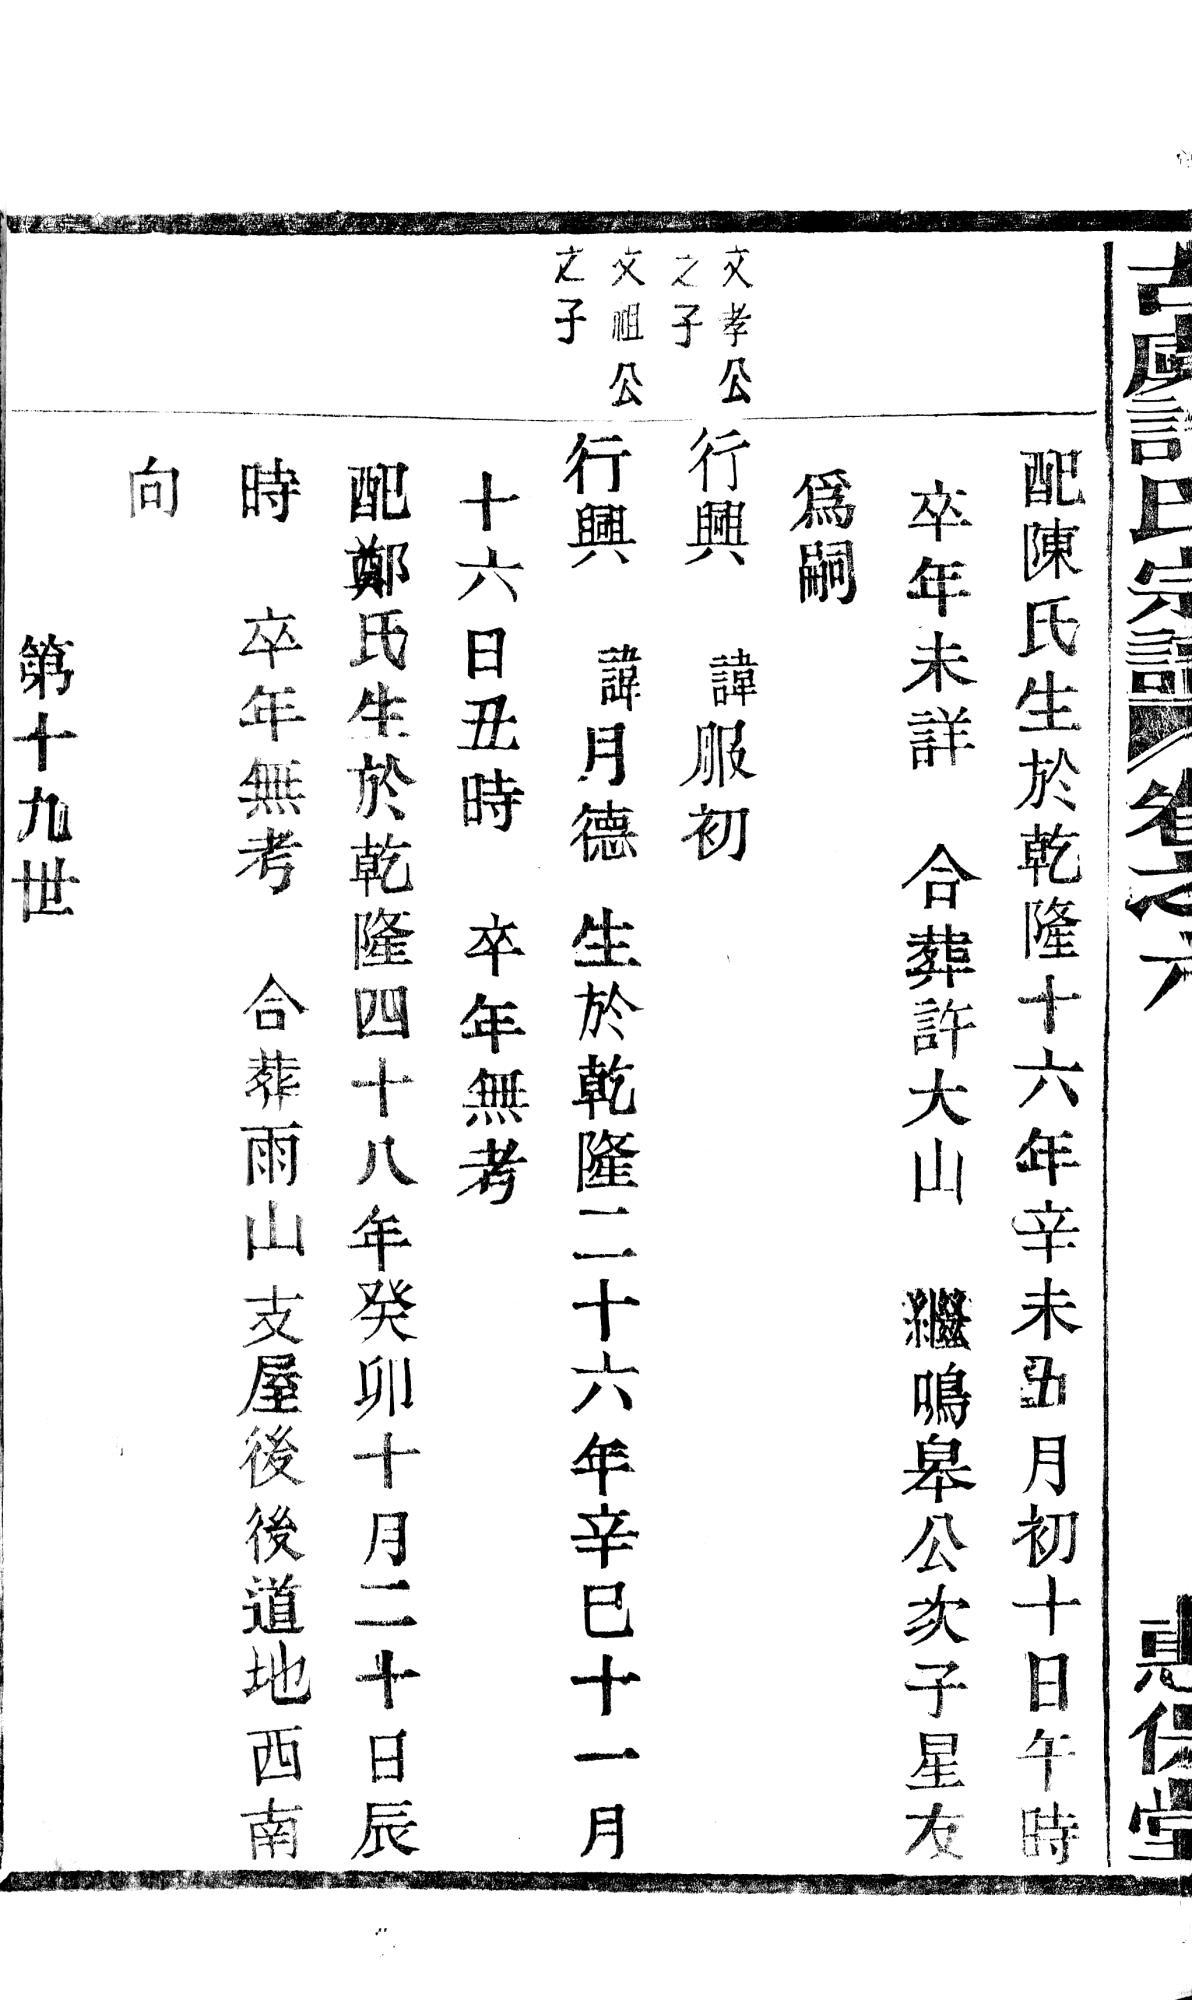 古虞許氏宗譜 卷之六 惠保堂
配陳氏生於乾隆十六年辛未五月初十日午時
卒年未詳 合葬許大山 繼鳴皋公次子星友
爲嗣
文孝公之子
行興 諱服初
文祖公之子
行興 諱月德 生於乾隆二十六年辛巳十一月
十六日丑時 卒年無考
配鄭氏生於乾隆四十八年癸卯十月二十日辰
時 卒年無考 合葬雨山支屋後後道地西南
向
第十九世